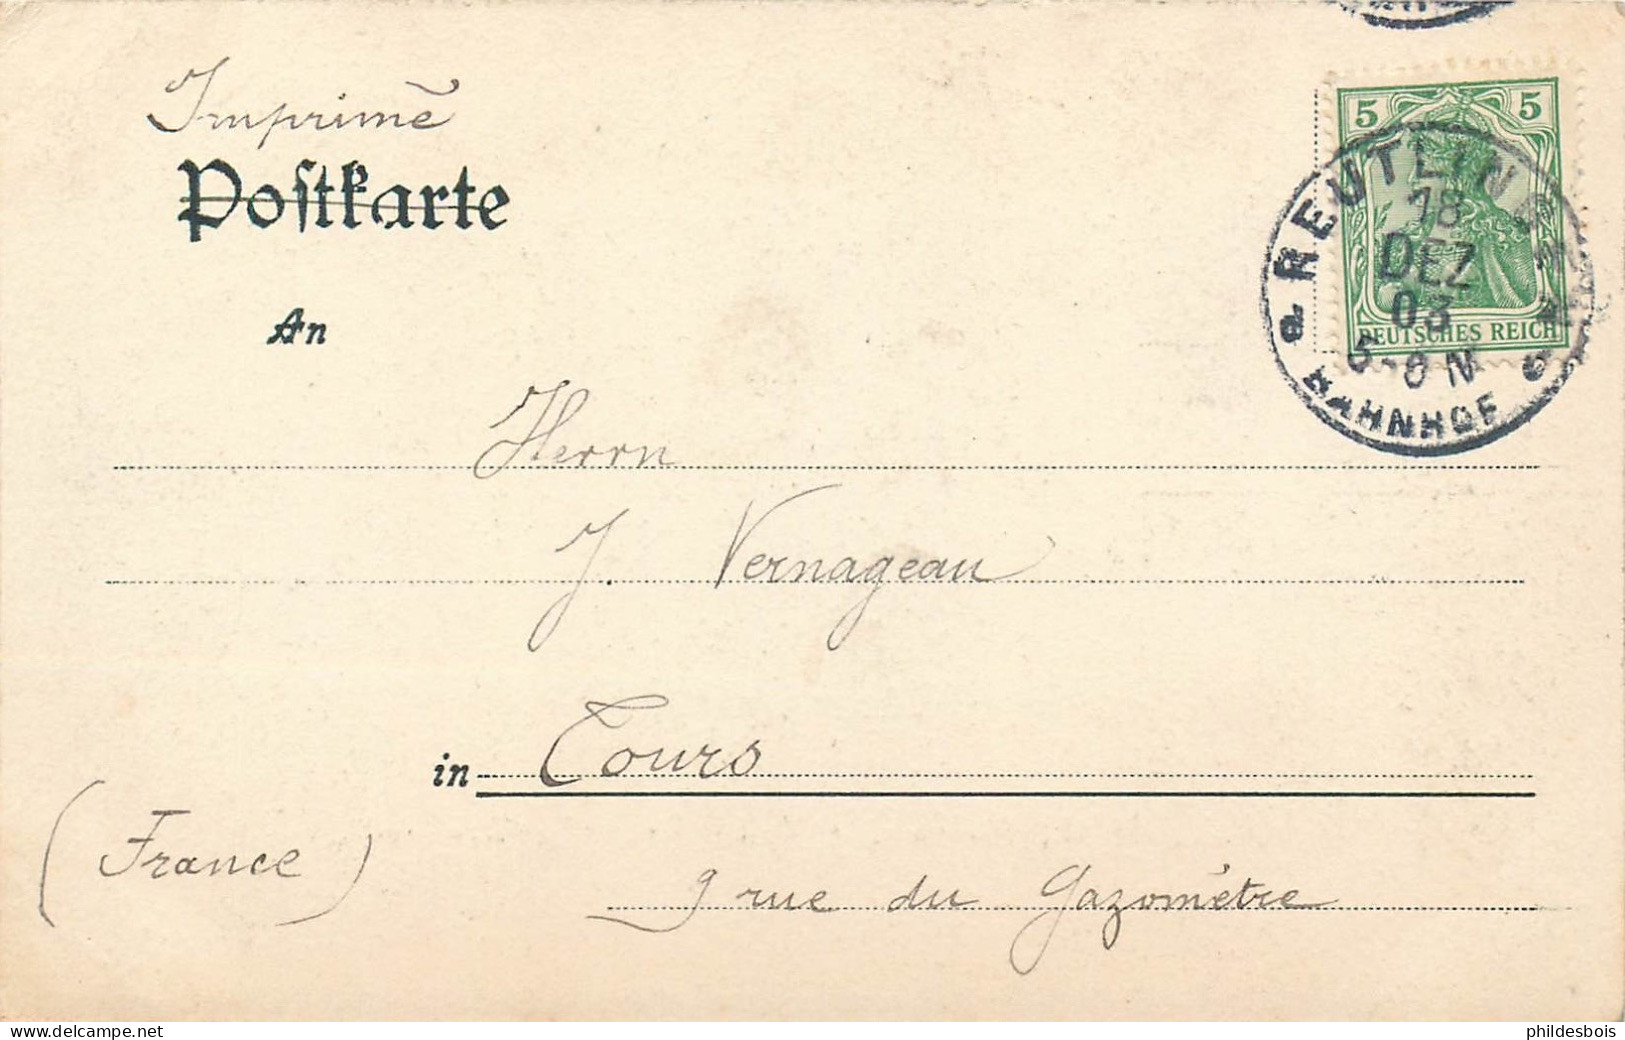 Imprimé
Postkarte
An
5 5
REUTLINGEN
18
DEZ
03
DEUTSCHES REICH
BAHNHOF
Herrn
J. Vernageau
in Tours
(France)
9 rue du Gazomètre
www.delcampe.net
phildesbois